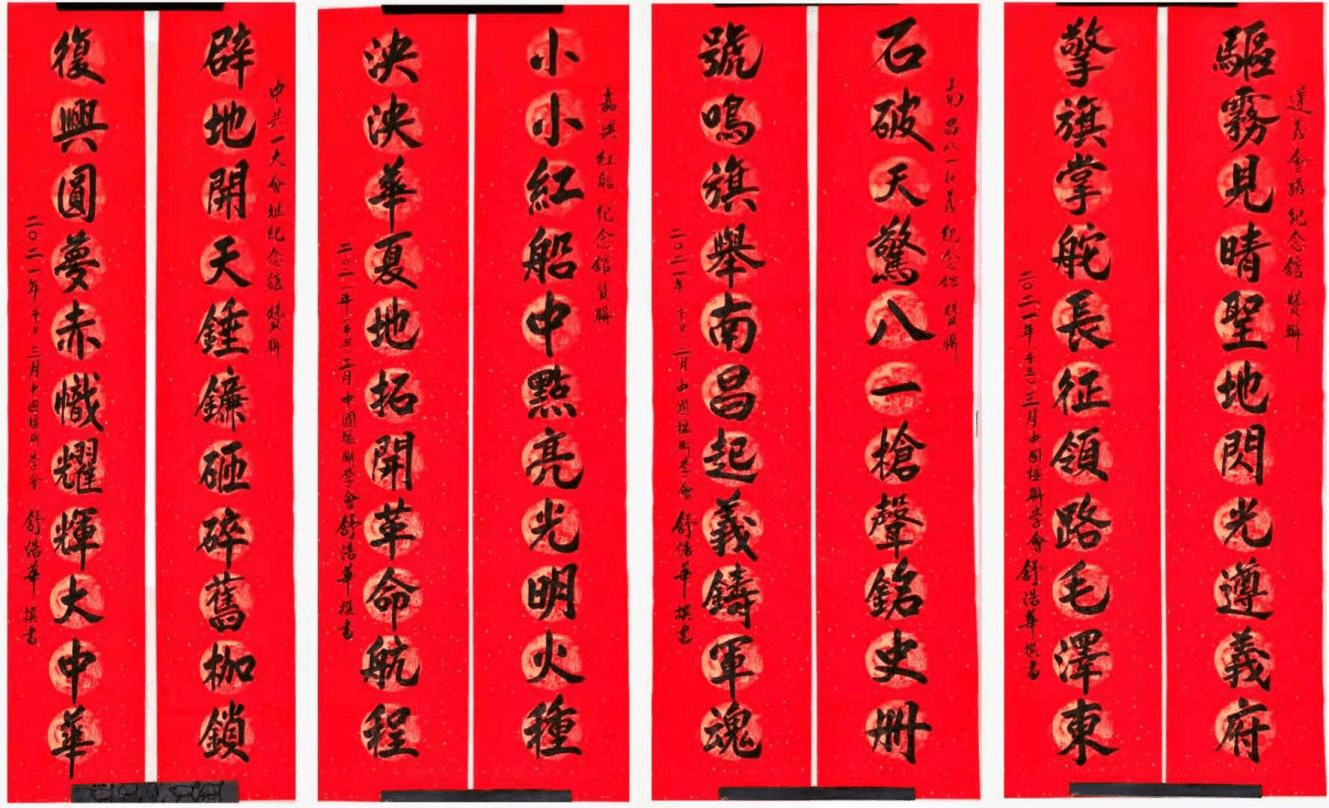 中共一大會址紀念館 贊聯
辟地開天錘鐮砸碎舊枷鎖
復興圓夢赤幟耀輝大中華
二〇二一年辛丑三月中國楹聯學會 舒浩華 撰書
嘉興紅船紀念館贊聯
小小紅船中點亮光明火種
泱泱華夏地拓開革命航程
二〇二一年辛丑三月中國楹聯學會舒浩華撰書
南昌八一起義紀念館贊聯
石破天驚八一槍聲銘史冊
號鳴旗舉南昌起義鑄軍魂
二〇二一年辛丑三月中國楹聯學會 舒浩華 撰書
遵義會議紀念館 贊聯
驅霧見晴聖地閃光遵義府
擎旗掌舵長征領路毛澤東
二〇二一年(辛丑)三月中國楹聯學會舒浩華撰書